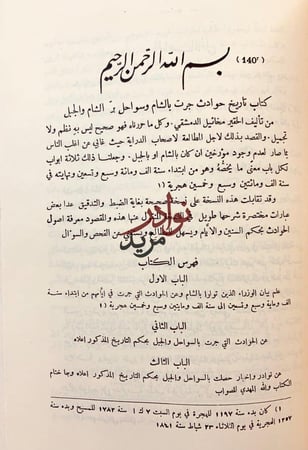 (140ᵛ)
بسم الله الرحمن الرحيم
كتاب تاريخ حوادث جرت بالشام وسواحل برّ الشام والجبل
من تأليف الحقير مخائيل الدمشقي. وكل ما حوراه فهو صحيح ليس به نظم ولا
تجميل. والقصد بذلك لاجل المطالعة لاصحاب الدراية حيث غابي عن اغلب الناس
ما صار لعدم وجود مؤرّخين ان كان بالشام او بالجبل. وجعلتُ ذلك ثلاثة ابواب
لكل باب معنى ما يختصّه وهو من ابتداء سنة الف ومائة وسبع وتسعين ونهايته في
سنة الف ومائتين وسبع وخمسين هجرية (١)
وقد تقابلت هذه النسخة على صحة بغاية الضبط والتدقيق عدا بعض
عبارات مختصرة شرحها طويل عنها هذا والمقصود معرفة اصول
الحوادث بحكم السنين والايام ويسهل عن الفحص والسؤال
نوادر
مزيد
فهرس الكتاب
الباب الاول
علم بيان الوزراء الذين تولوا بالشام وعن الحوادث التي جرت في ايامهم من ابتداء سنة
الف وماية وسبع وتسعين الى سنة الف وميتين وسبع وخمسين هجرية (١)
الباب الثاني
عن الحوادث التي جرت بالسواحل والجبل بحكم التاريخ المذكور اعلاه
الباب الثالث
عن نوادر واخبار حصلت بالسواحل والجبل بحكم التاريخ المذكور اعلاه وجا ختام
الكتاب والله المهدي للصواب
١) كان بدء سنة ١١٩٧ للهجرة في يوم السبت ٧ ك ١ سنة ١٧٨٢ للمسيح وبدء سنة
١٢٥٧ الهجرية في يوم الثلاثاء ٢٣ شباط سنة ١٨٤١